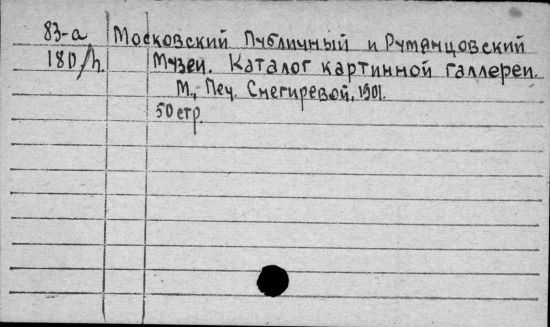 83-а Московский Публичный и Румянцовский
180/h. Музеи. Каталог картинной галлереи.
М., Печ. Снегиревой, 1901.
50 стр.